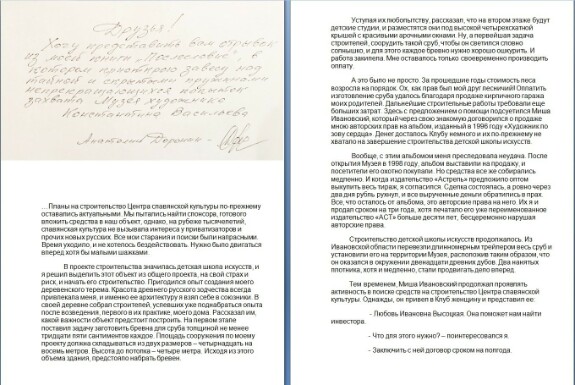 Друзья!
Хочу представить вам отрывок
из моей книги "Послесловие", в
котором приоткрою завесу над
тайной и скрытыми пружинами
непрекращающихся попыток
захвата Музея художника
Константина Васильева
Анатолий Доронин -
…Планы на строительство Центра славянской культуры по-прежнему
оставались актуальными. Мы пытались найти спонсора, готового
вложить средства в наш объект, однако, на рубеже тысячелетий,
славянская культура не вызывала интереса у приватизаторов и
прочих новых русских. Все мои старания и поиски были напрасными.
Время уходило, и не хотелось бездействовать. Нужно было двигаться
вперед хотя бы малыми шажками.
В проекте строительства значилась детская школа искусств, и
я решил выделить этот объект из общего проекта, на свой страх и
риск, и начать его строительство. Пригодился опыт создания моего
деревенского терема. Красота древнего русского зодчества всегда
привлекала меня, и именно ее архитектуру я взял себе в союзники. В
своей деревне собрал строителей, успевших уже поднабраться опыта
после возведения, первого в их практике, моего дома. Рассказал им,
какой важности объект предстоит построить. На первом этапе
поставил задачу заготовить бревна для сруба толщиной не менее
тридцати пяти сантиметров каждое. Площадь сооружения по моему
проекту должна складываться из двух размеров – четырнадцать на
восемь метров. Высота до потолка – четыре метра. Исходя из этого
объема здания, предстояло набрать бревен.
Уступая их любопытству, рассказал, что на втором этаже будут
детские студии, и разместятся они под высокой четырехскатной
крышей и с красивыми арочными окнами. Ну, а первейшая задача
строителей, соорудить такой сруб, чтобы он светился словно
солнышко, и для этого каждое бревно нужно хорошо ошкурить. И
работа закипела. Мне оставалось только своевременно производить
оплату.
А это было не просто. За прошедшие годы стоимость леса
возросла на порядок. Ох, как прав был мой друг лесничий! Оплатить
изготовление сруба удалось благодаря продаже кирпичного гаража
моих родителей. Дальнейшие строительные работы требовали еще
больших затрат. Здесь с предложением о помощи подсуетился Миша
Ивановский, который через свою знакомую договорился о продаже
мною авторских прав на альбом, изданный в 1998 году «Художник по
зову сердца». Денег досталось Клубу немного и их по-прежнему не
хватало на завершение строительства детской школы искусств.
Вообще, с этим альбомом меня преследовала неудача. После
открытия Музея в 1998 году, альбом выставили на продажу, и
посетители его охотно покупали. Но средства все же собирались
медленно. И когда издательство «Астрель» предложило оптом
выкупить весь тираж, я согласился. Сделка состоялась, а ровно через
два дня рубль рухнул, и все вырученные деньги обратились в прах.
Все, что осталось от альбома, это авторские права на него. Их я и
продал сроком на три года, хотя печатало его уже переименованное
издательство «АСТ» больше десяти лет, бесцеремонно нарушая
авторские права.
Строительство детской школы искусств продолжалось. Из
Ивановской области перевезли длинномерным трейлером весь сруб и
установили его на территории Музея, расположив таким образом, что
он оказался в окружении двенадцати древних дубов. Два нанятых
плотника, хотя и медленно, стали продвигать дело вперед.
Тем временем, Миша Ивановский продолжал проявлять
активность в поиске средств на строительство Центра славянской
культуры. Однажды, он привел в Клуб женщину и представил ее:
- Любовь Ивановна Высоцкая. Она поможет нам найти
инвестора.
- Что для этого нужно? – поинтересовался я.
- Заключить с ней договор сроком на полгода.